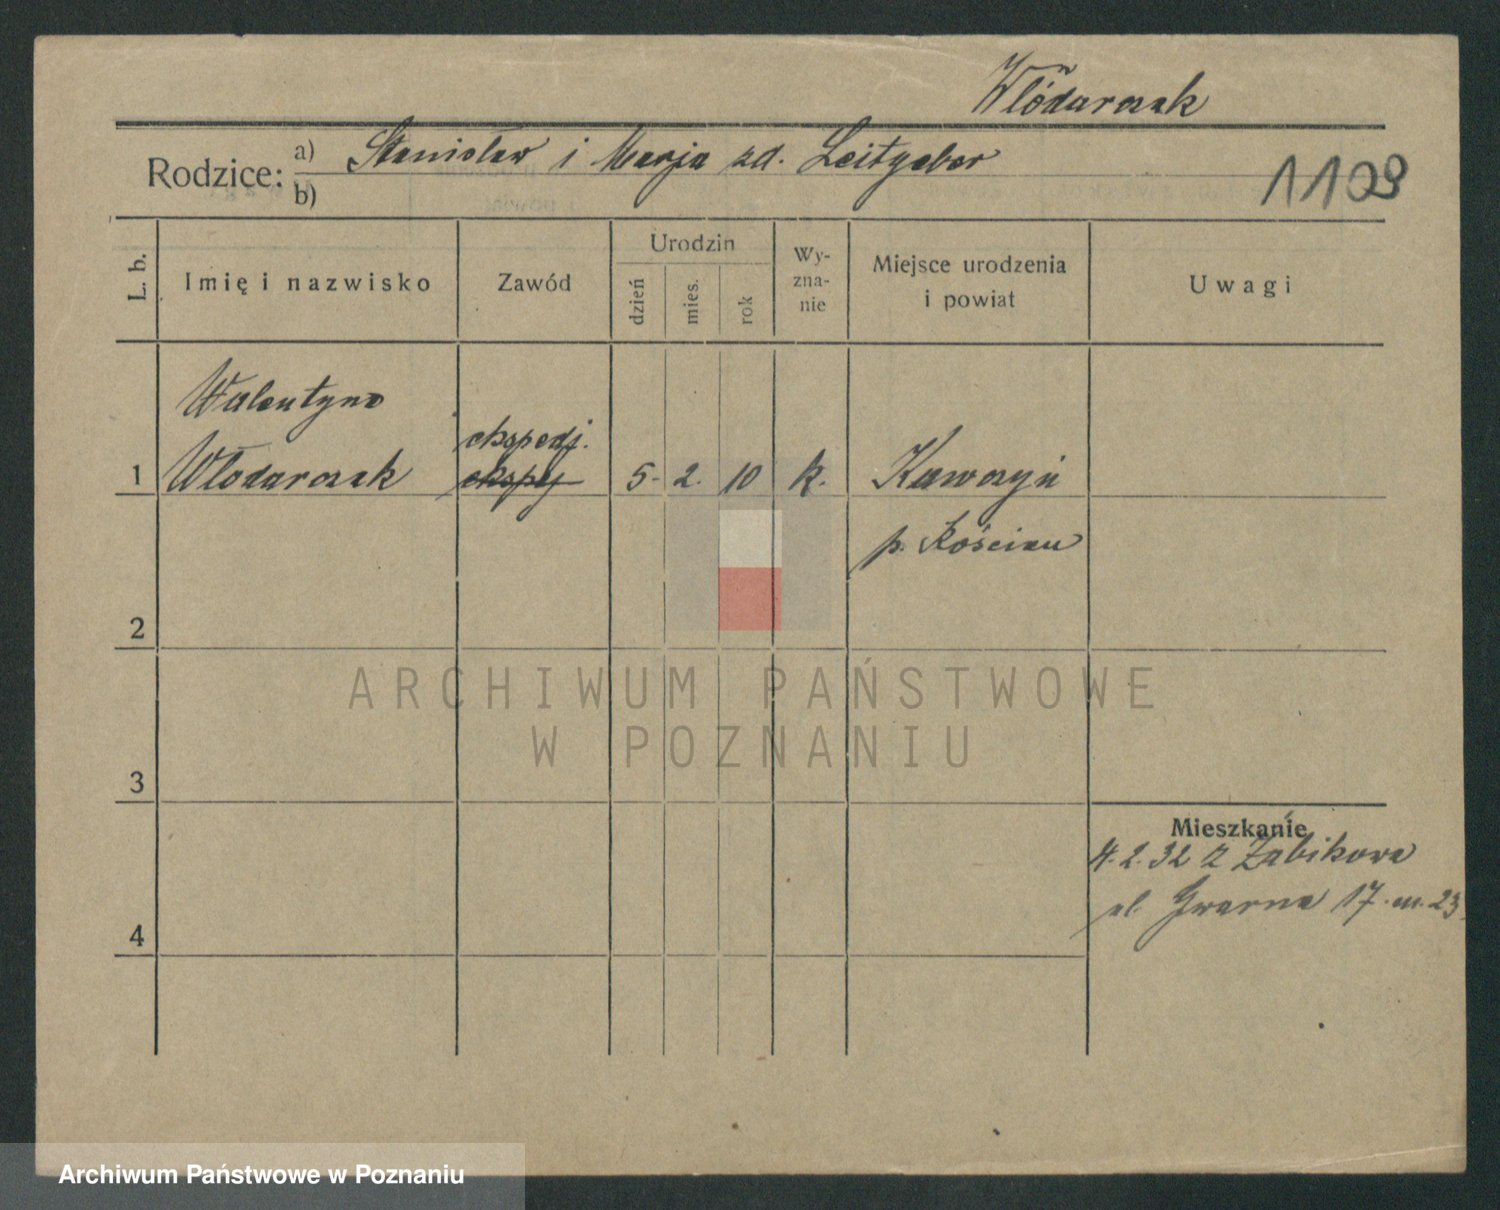 Włodarczak
Rodzice: a) Stanisław i Marja zd. Leitgeber
b)
1109
L. b.
Imię i nazwisko
Zawód
Urodzin
dzień
mies.
rok
Wy-
zna-
nie
Miejsce urodzenia
i powiat
Uwagi
Walentyna
ekspedj.
1 Włodarczak ekspj 5. 2. 10 k. Kawczyn
p. Kościan
2
ARCHIWUM PAŃSTWOWE
W POZNANIU
3
Mieszkanie
4.2.32 z Żabikowa
ul. Gwarna 17 m. 23
4
Archiwum Państwowe w Poznaniu